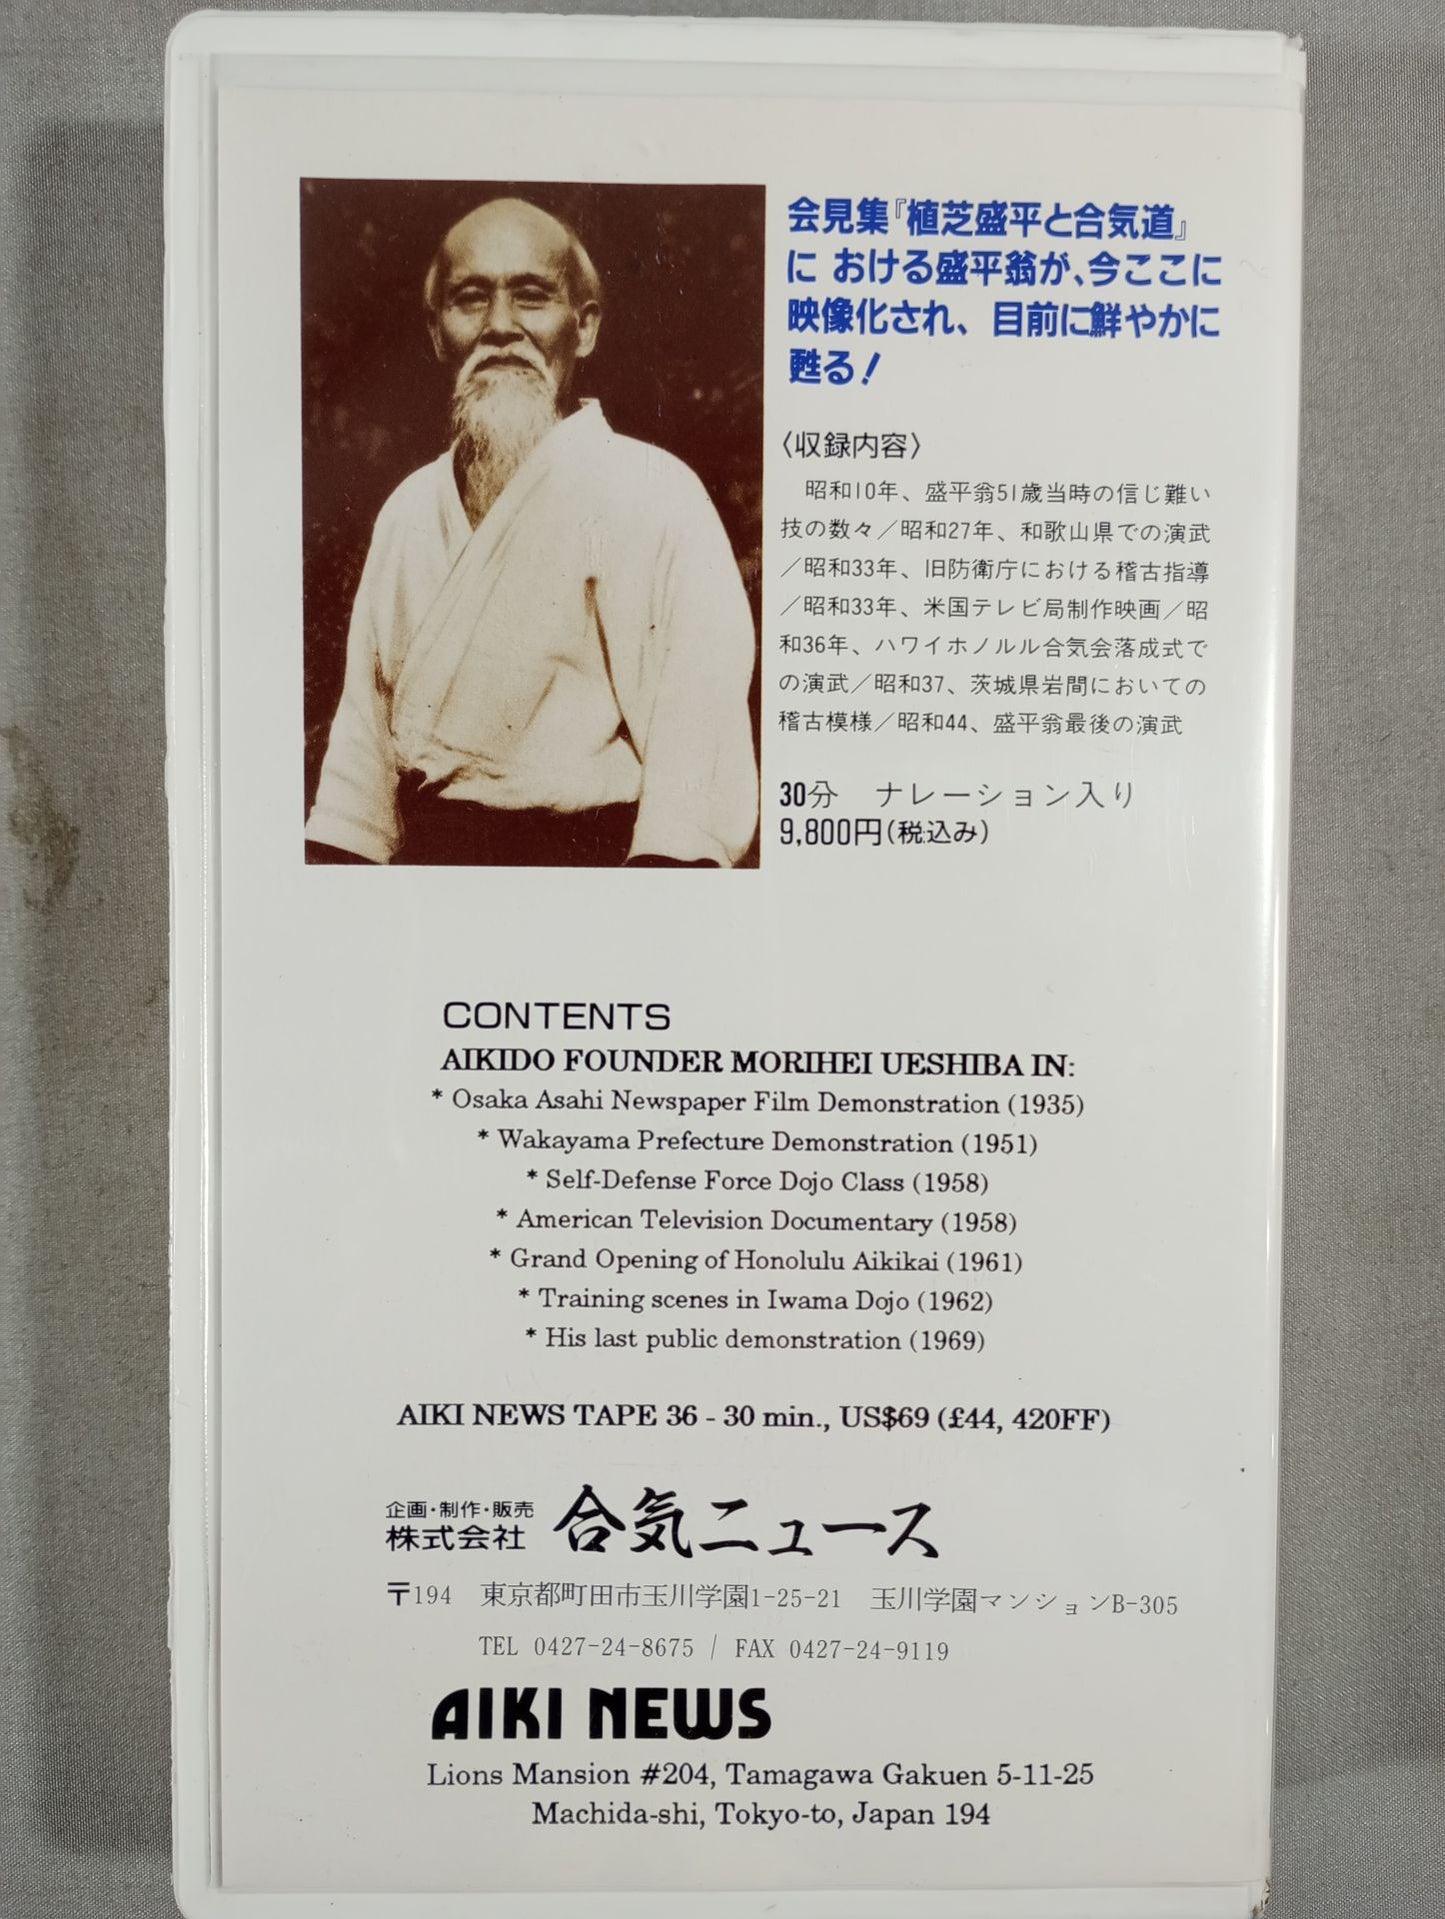 会見集『植芝盛平と合気道』
に おける盛平翁が、今ここに
映像化され、目前に鮮やかに
甦る！
〈収録内容〉
昭和10年、盛平翁51歳当時の信じ難い
技の数々／昭和27年、和歌山県での演武
／昭和33年、旧防衛庁における稽古指導
／昭和33年、米国テレビ局制作映画／昭
和36年、ハワイホノルル合気会落成式で
の演武／昭和37、茨城県岩間においての
稽古模様／昭和44、盛平翁最後の演武
30分 ナレーション入り
9,800円(税込み)
CONTENTS
AIKIDO FOUNDER MORIHEI UESHIBA IN:
* Osaka Asahi Newspaper Film Demonstration (1935)
* Wakayama Prefecture Demonstration (1951)
* Self-Defense Force Dojo Class (1958)
* American Television Documentary (1958)
* Grand Opening of Honolulu Aikikai (1961)
* Training scenes in Iwama Dojo (1962)
* His last public demonstration (1969)
AIKI NEWS TAPE 36 - 30 min., US$69 (£44, 420FF)
企画・制作・販売
株式会社 合気ニュース
〒194 東京都町田市玉川学園1-25-21 玉川学園マンションB-305
TEL 0427-24-8675 / FAX 0427-24-9119
AIKI NEWS
Lions Mansion #204, Tamagawa Gakuen 5-11-25
Machida-shi, Tokyo-to, Japan 194